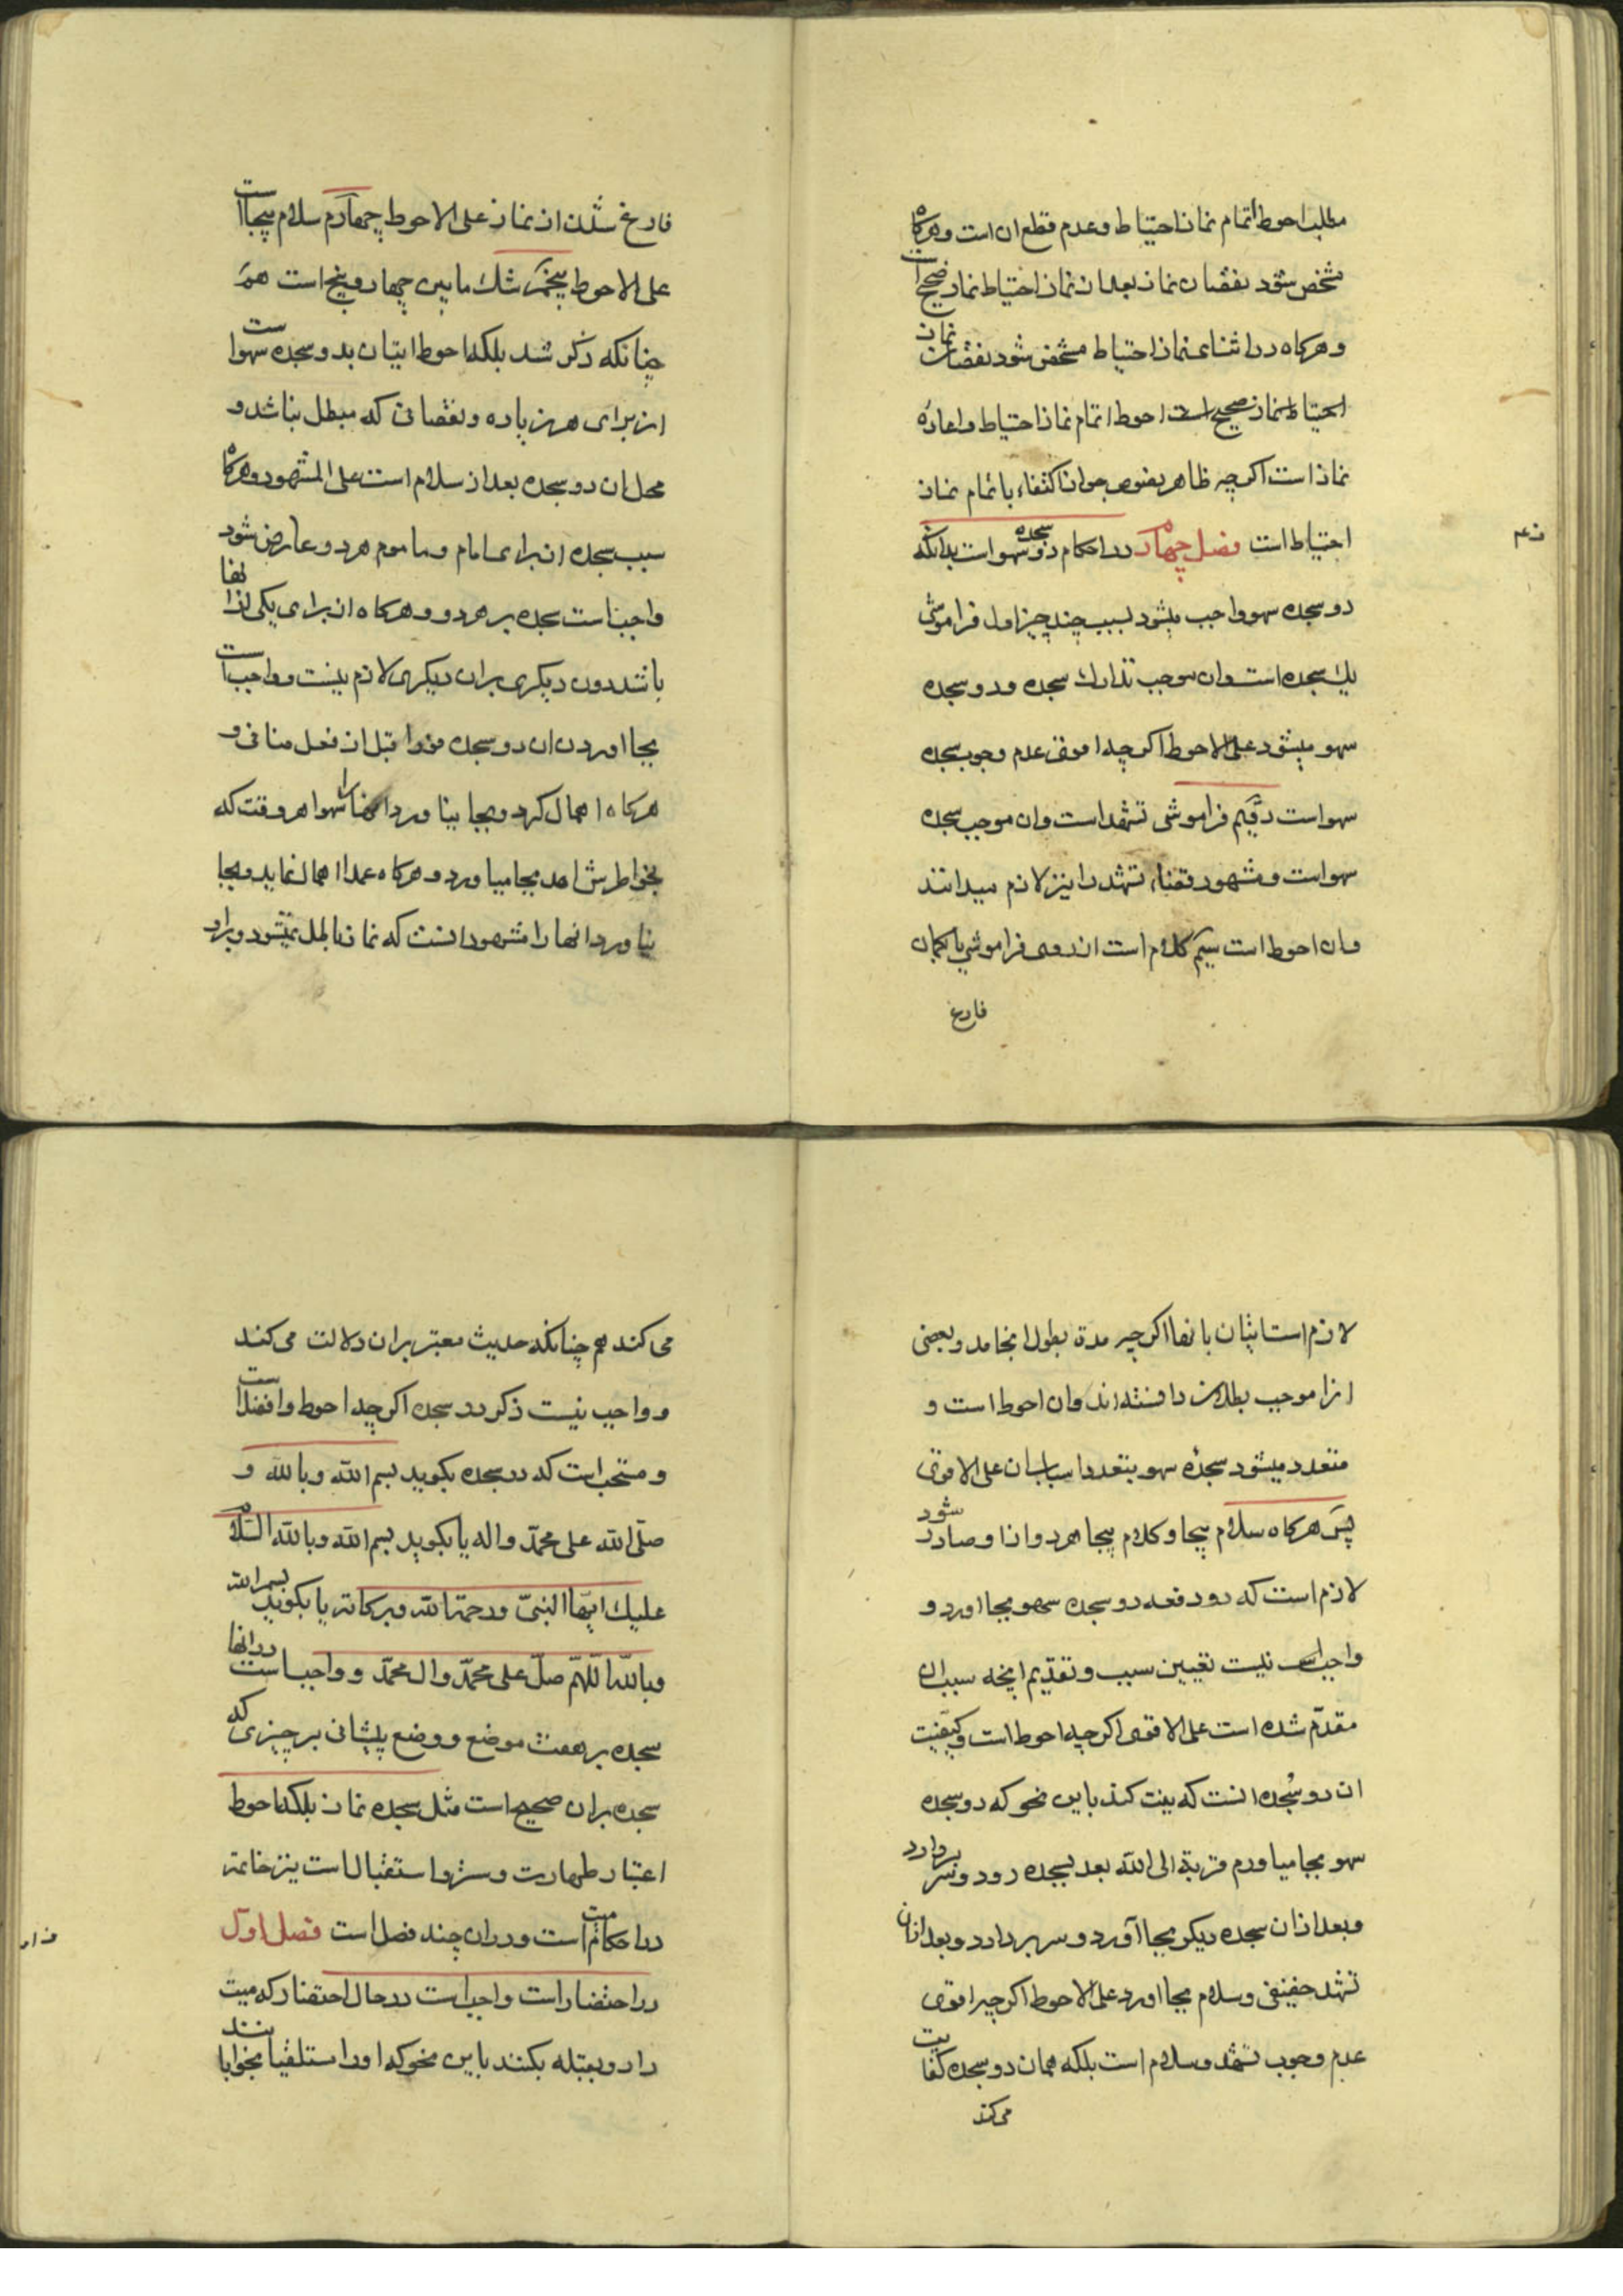 مطلب احوط اتمام نماز احتیاط و عدم قطع ان است و هرکاه
مشخص شود نقصان نماز بعد از نماز احتیاط نماز صحیح است
و هرکاه در اثنای نماز احتیاط مشخص شود نقصان نماز
احوط اتمام نماز احتیاط و اعاده
نماز است اکرچه ظاهر بعضی جواز اکتفاء باتمام نماز
احتیاط است فصل چهارم در احکام دو سجده سهو است بدانکه
دو سجده سهو واجب میشود بسبب چند چیز اول فراموشی
یک سجده است و ان موجب تدارک سجده و دو سجده
سهو میشود علی الاحوط اکرچه اقوی عدم وجوب سجده
سهو است دویم فراموشی تشهد است و ان موجب سجده
سهو است و مشهور قضاء تشهد را نیز لازم میدانند
و ان احوط است سیم کلام است از روی فراموشی یا کمان
فارغ
فارغ شدن از نماز علی الاحوط چهارم سلام بیجا است
علی الاحوط پنجم شک مابین چهار و پنج است هم
چنانکه ذکر شد بلکه احوط اتیان بدو سجده سهو است
از برای هر زیاده و نقصانی که مبطل نباشد و
محل ان دو سجده بعد از سلام است علی المشهور و هرکاه
سبب سجده از برای امام و ماموم هر دو عارض شود
واجب است سجده بر هر دو و هرکاه از برای یکی از انها
باشد دون دیکری بر ان دیکری لازم نیست و واجب است
بجا اوردن ان دو سجده فورا قبل از فعل منافی و
هرکاه اهمال کرد و بجا نیاورد انها را سهوا هر وقت که
بخواطرش امد بجا میاورد و هرکاه عمدا اهمال نماید و بجا
نیاورد انها را مشهور انست که نماز باطل نمیشود و براو
لازم است اتیان بانها اکرچه مدة بطول انجامد و بعضی
انرا موجب بطلان دانسته اند و ان احوط است و
متعدد میشود سجده سهو بتعدد اسباب ان علی الاقوی
پس هرکاه سلام بیجا و کلام بیجا هر دو از او صادر شود
لازم است که دو دفعه دو سجده سهو بجا اورد و
واجب نیست تعیین سبب و تقدیم انچه سبب ان
مقدم شده است علی الاقوی اکرچه احوط است و کیفیت
ان دو سجده انست که نیت کند باین نحو که دو سجده
سهو بجا میاورم قربة الی الله بعد بسجده رود و سر بردارد
و بعد از ان سجده دیکر بجا آورد و سر بردارد و بعد از ان
تشهد خفیفی و سلام بجا اورد علی الاحوط اکرچه اقوی
عدم وجوب تشهد و سلام است بلکه همان دو سجده کفایت
می کند
می کند هم چنانکه حدیث معتبر بر ان دلالت می کند
و واجب نیست ذکر در سجده اکرچه احوط و افضل است
و مستحب است که در سجده بکوید بسم الله و بالله و
صلّی الله علی محمّد و اله یا بکوید بسم الله و بالله السّلام
علیک ایّها النبیّ و رحمة الله و برکاته یا بکوید بسم الله
و بالله اللّهمّ صلّ علی محمّد و ال محمّد و واجب است در انها
سجده بر هفت موضع و وضع پیشانی بر چیزی که
سجده بر ان صحیح است مثل سجده نماز بلکه احوط
اعتبار طهارت و ستر و استقبال است نیز خاتمه
در احکام میت است و در ان چند فصل است فصل اول
در احتضار است واجب است در حال احتضار که میت
را رو بقبله بکنند باین نحو که او را مستلقیا بخوابانند